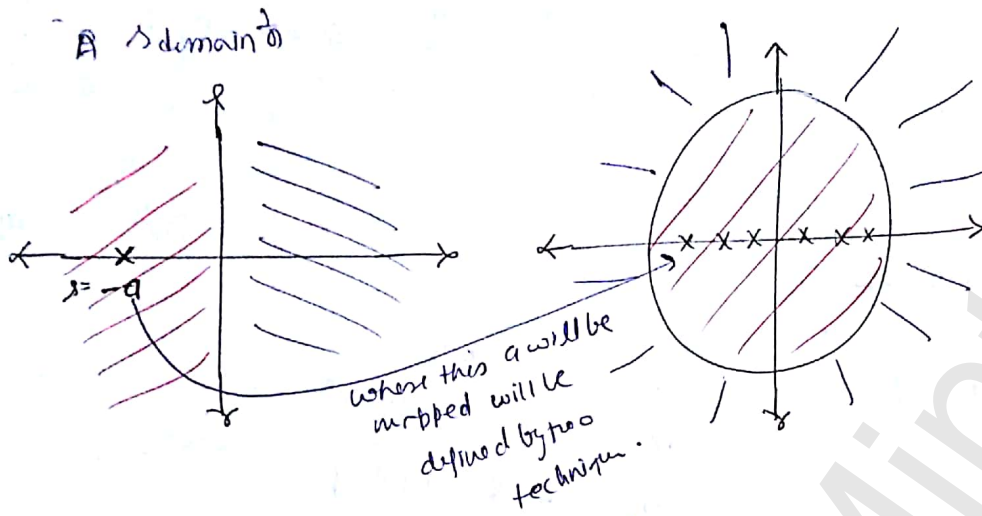 A S domain
s = -a
where this a will be
mapped will be
defined by two
technique.